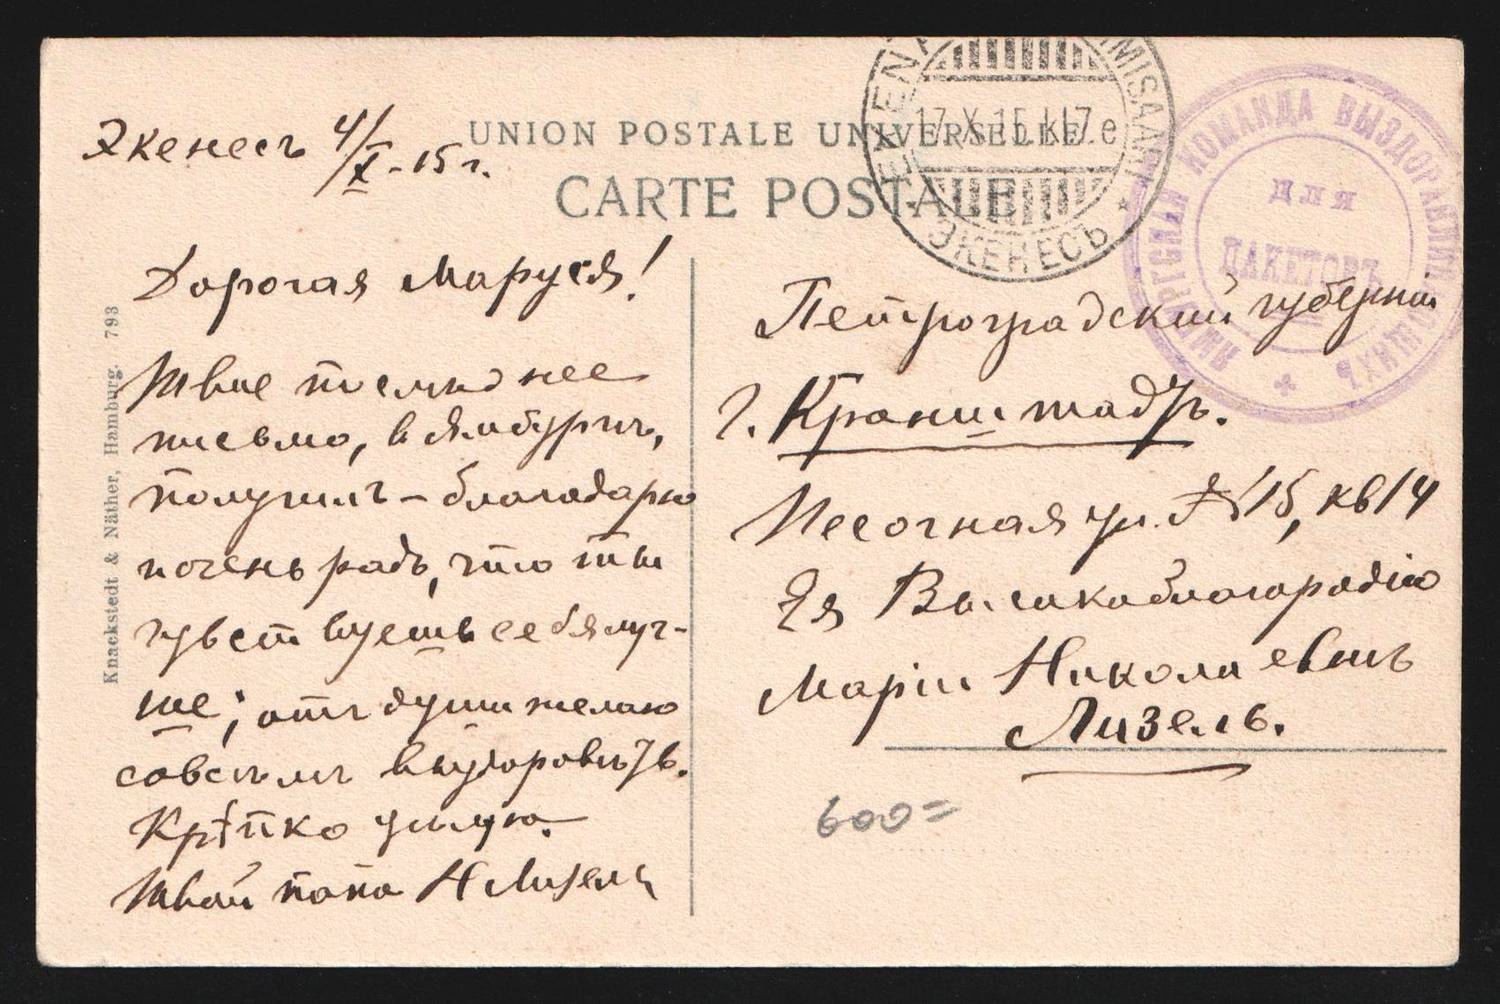 Экенесъ 4/X-15 г.
UNION POSTALE UNIVERSELLE
CARTE POSTALE
17.X.15.
ЭКЕНЕСЪ
КОМАНДА ВЫЗДОРАВЛИВАЮЩИХЪ
ДЛЯ
ПАКЕТОВЪ
Knackstedt & Näther, Hamburg. 793
Дорогая Маруся!
Твое последнее
письмо, в Ямбургѣ,
получилъ – благодарю
и очень радъ, что ты
чувствуешь себя луч-
ше; отъ души желаю
совсѣмъ выздоровѣть.
Крѣпко цѣлую.
Твой папа Н Лизель
Петроградской губерніи
г. Кронштадтъ.
Песочная ул. № 15, кв 14
Ея Высокоблагородію
Маріи Николаевнѣ
Лизель.
600=